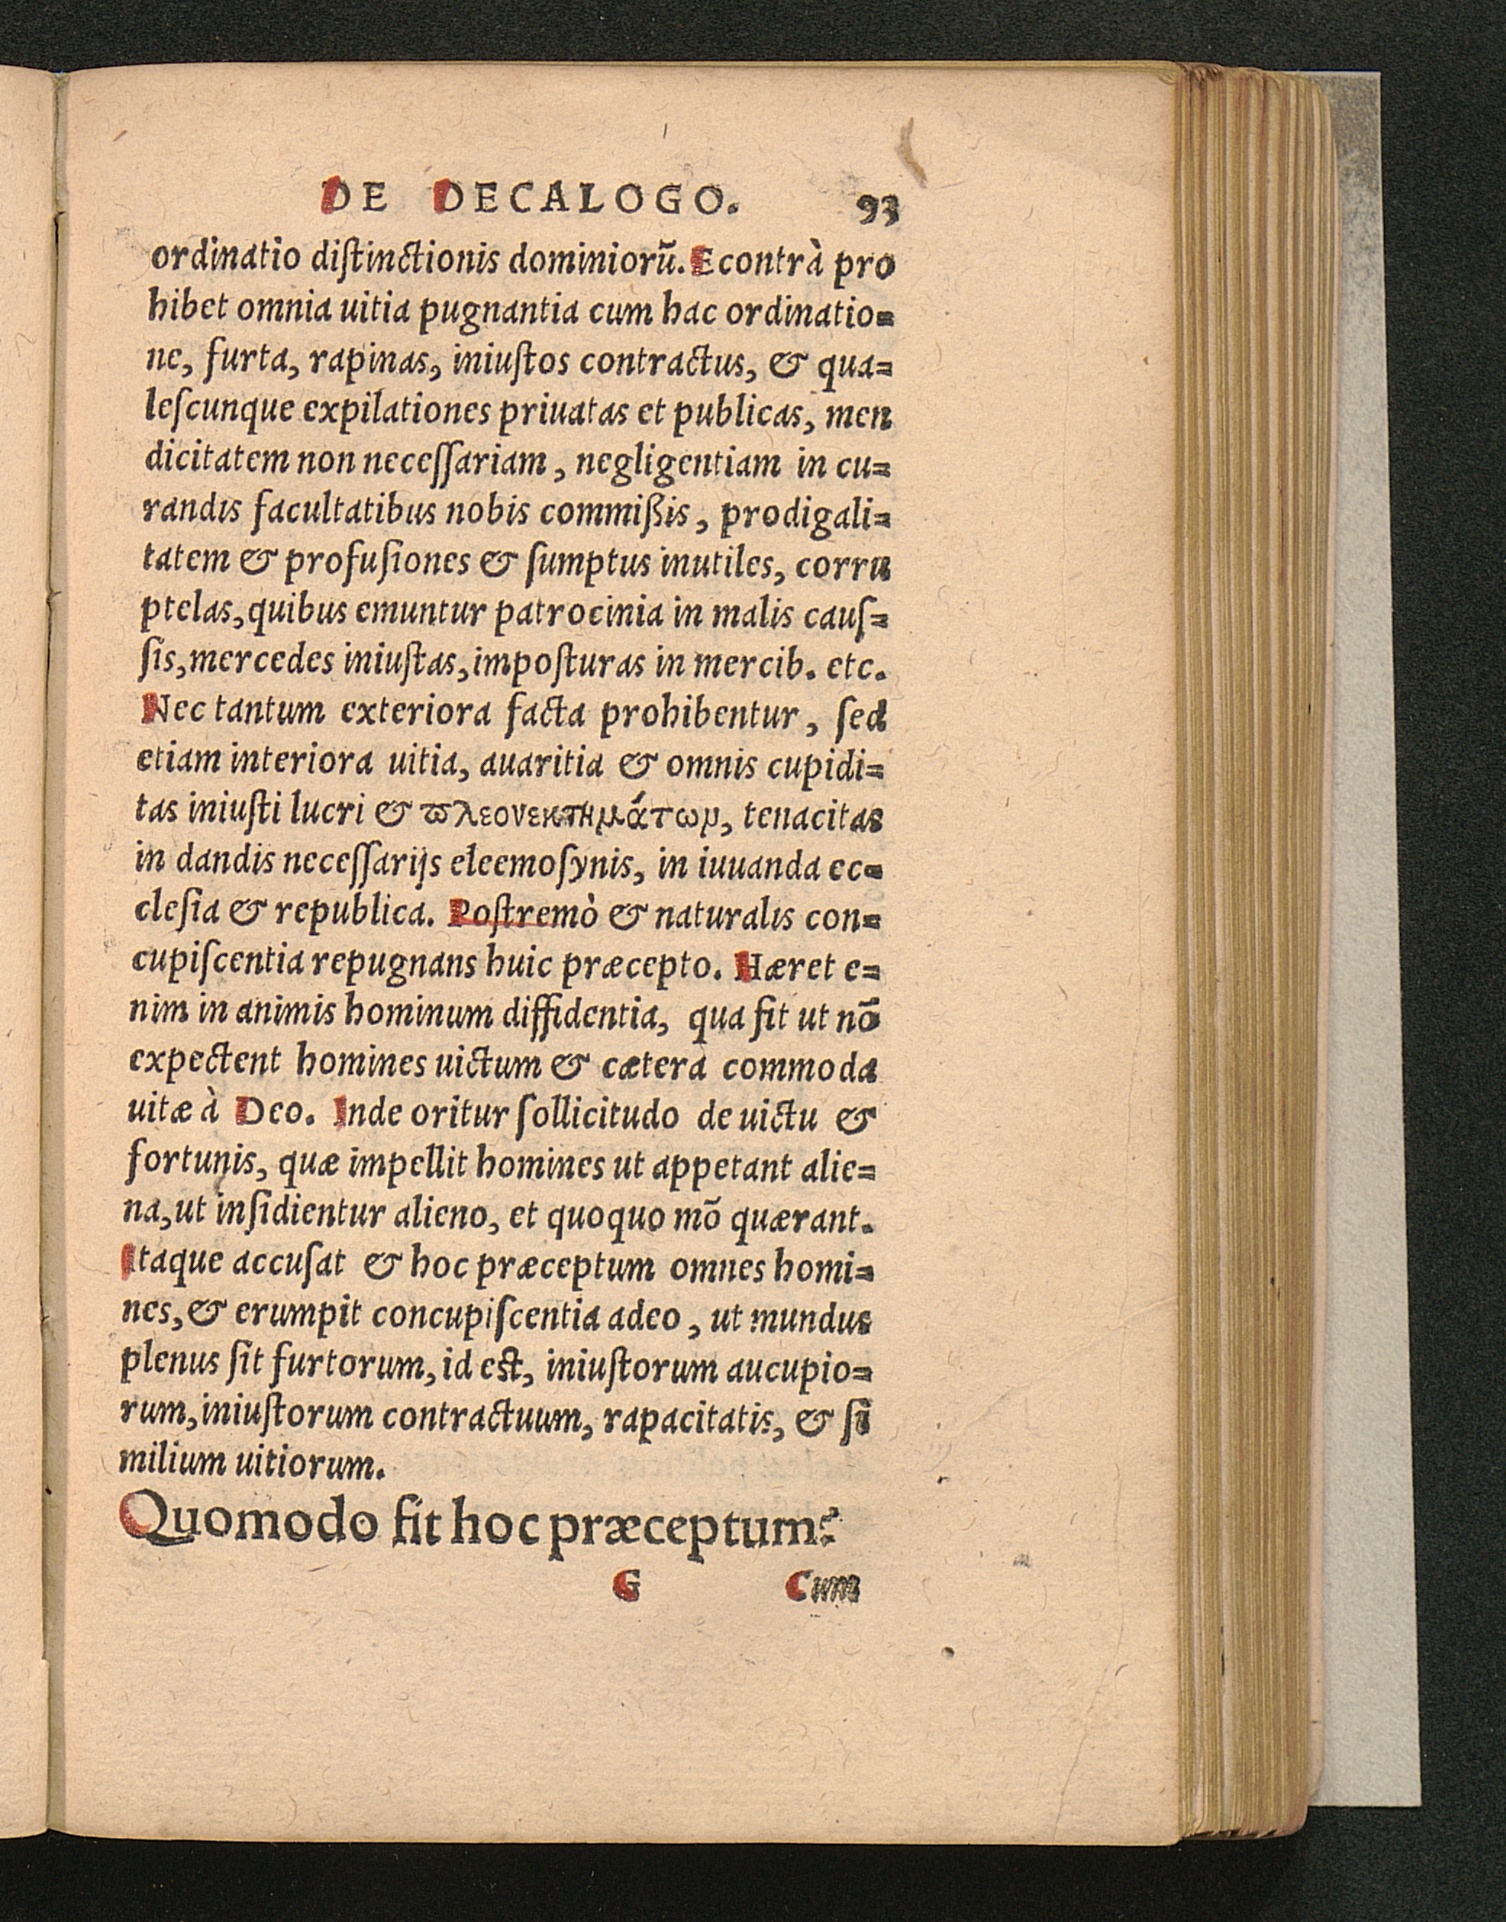 DE DECALOGO. 93
ordinatio diſtinctionis dominiorũ. Econtrà pro
hibet omnia uitia pugnantia cum hac ordinatio=
ne, furta, rapinas, iniuſtos contractus, & qua=
leſcunque expilationes priuatas et publicas, men
dicitatem non neceſſariam, negligentiam in cu=
randis facultatibus nobis commißis, prodigali=
tatem & profuſiones & ſumptus inutiles, corru
ptelas, quibus emuntur patrocinia in malis cauſ=
ſis, mercedes iniuſtas, impoſturas in mercib. etc.
Nec tantum exteriora facta prohibentur, ſed
etiam interiora uitia, auaritia & omnis cupidi=
tas iniuſti lucri & ϖλεονεκτημάτωμ, tenacitas
in dandis neceſſarijs eleemoſynis, in iuuanda ec=
cleſia & republica. Poſtremò & naturalis con=
cupiſcentia repugnans huic præcepto. Hæret e=
nim in animis hominum diffidentia, qua fit ut nõ
expectent homines uictum & cætera commoda
uitæ à Deo. Inde oritur ſollicitudo de uictu &
fortunis, quæ impellit homines ut appetant alie=
na, ut inſidientur alieno, et quoquo mõ quærant.
Itaque accuſat & hoc præceptum omnes homi=
nes, & erumpit concupiſcentia adeo, ut mundus
plenus ſit furtorum, id eſt, iniuſtorum aucupio=
rum, iniuſtorum contractuum, rapacitatis, & ſi
milium uitiorum.
Quomodo fit hoc præceptum?
G Cum